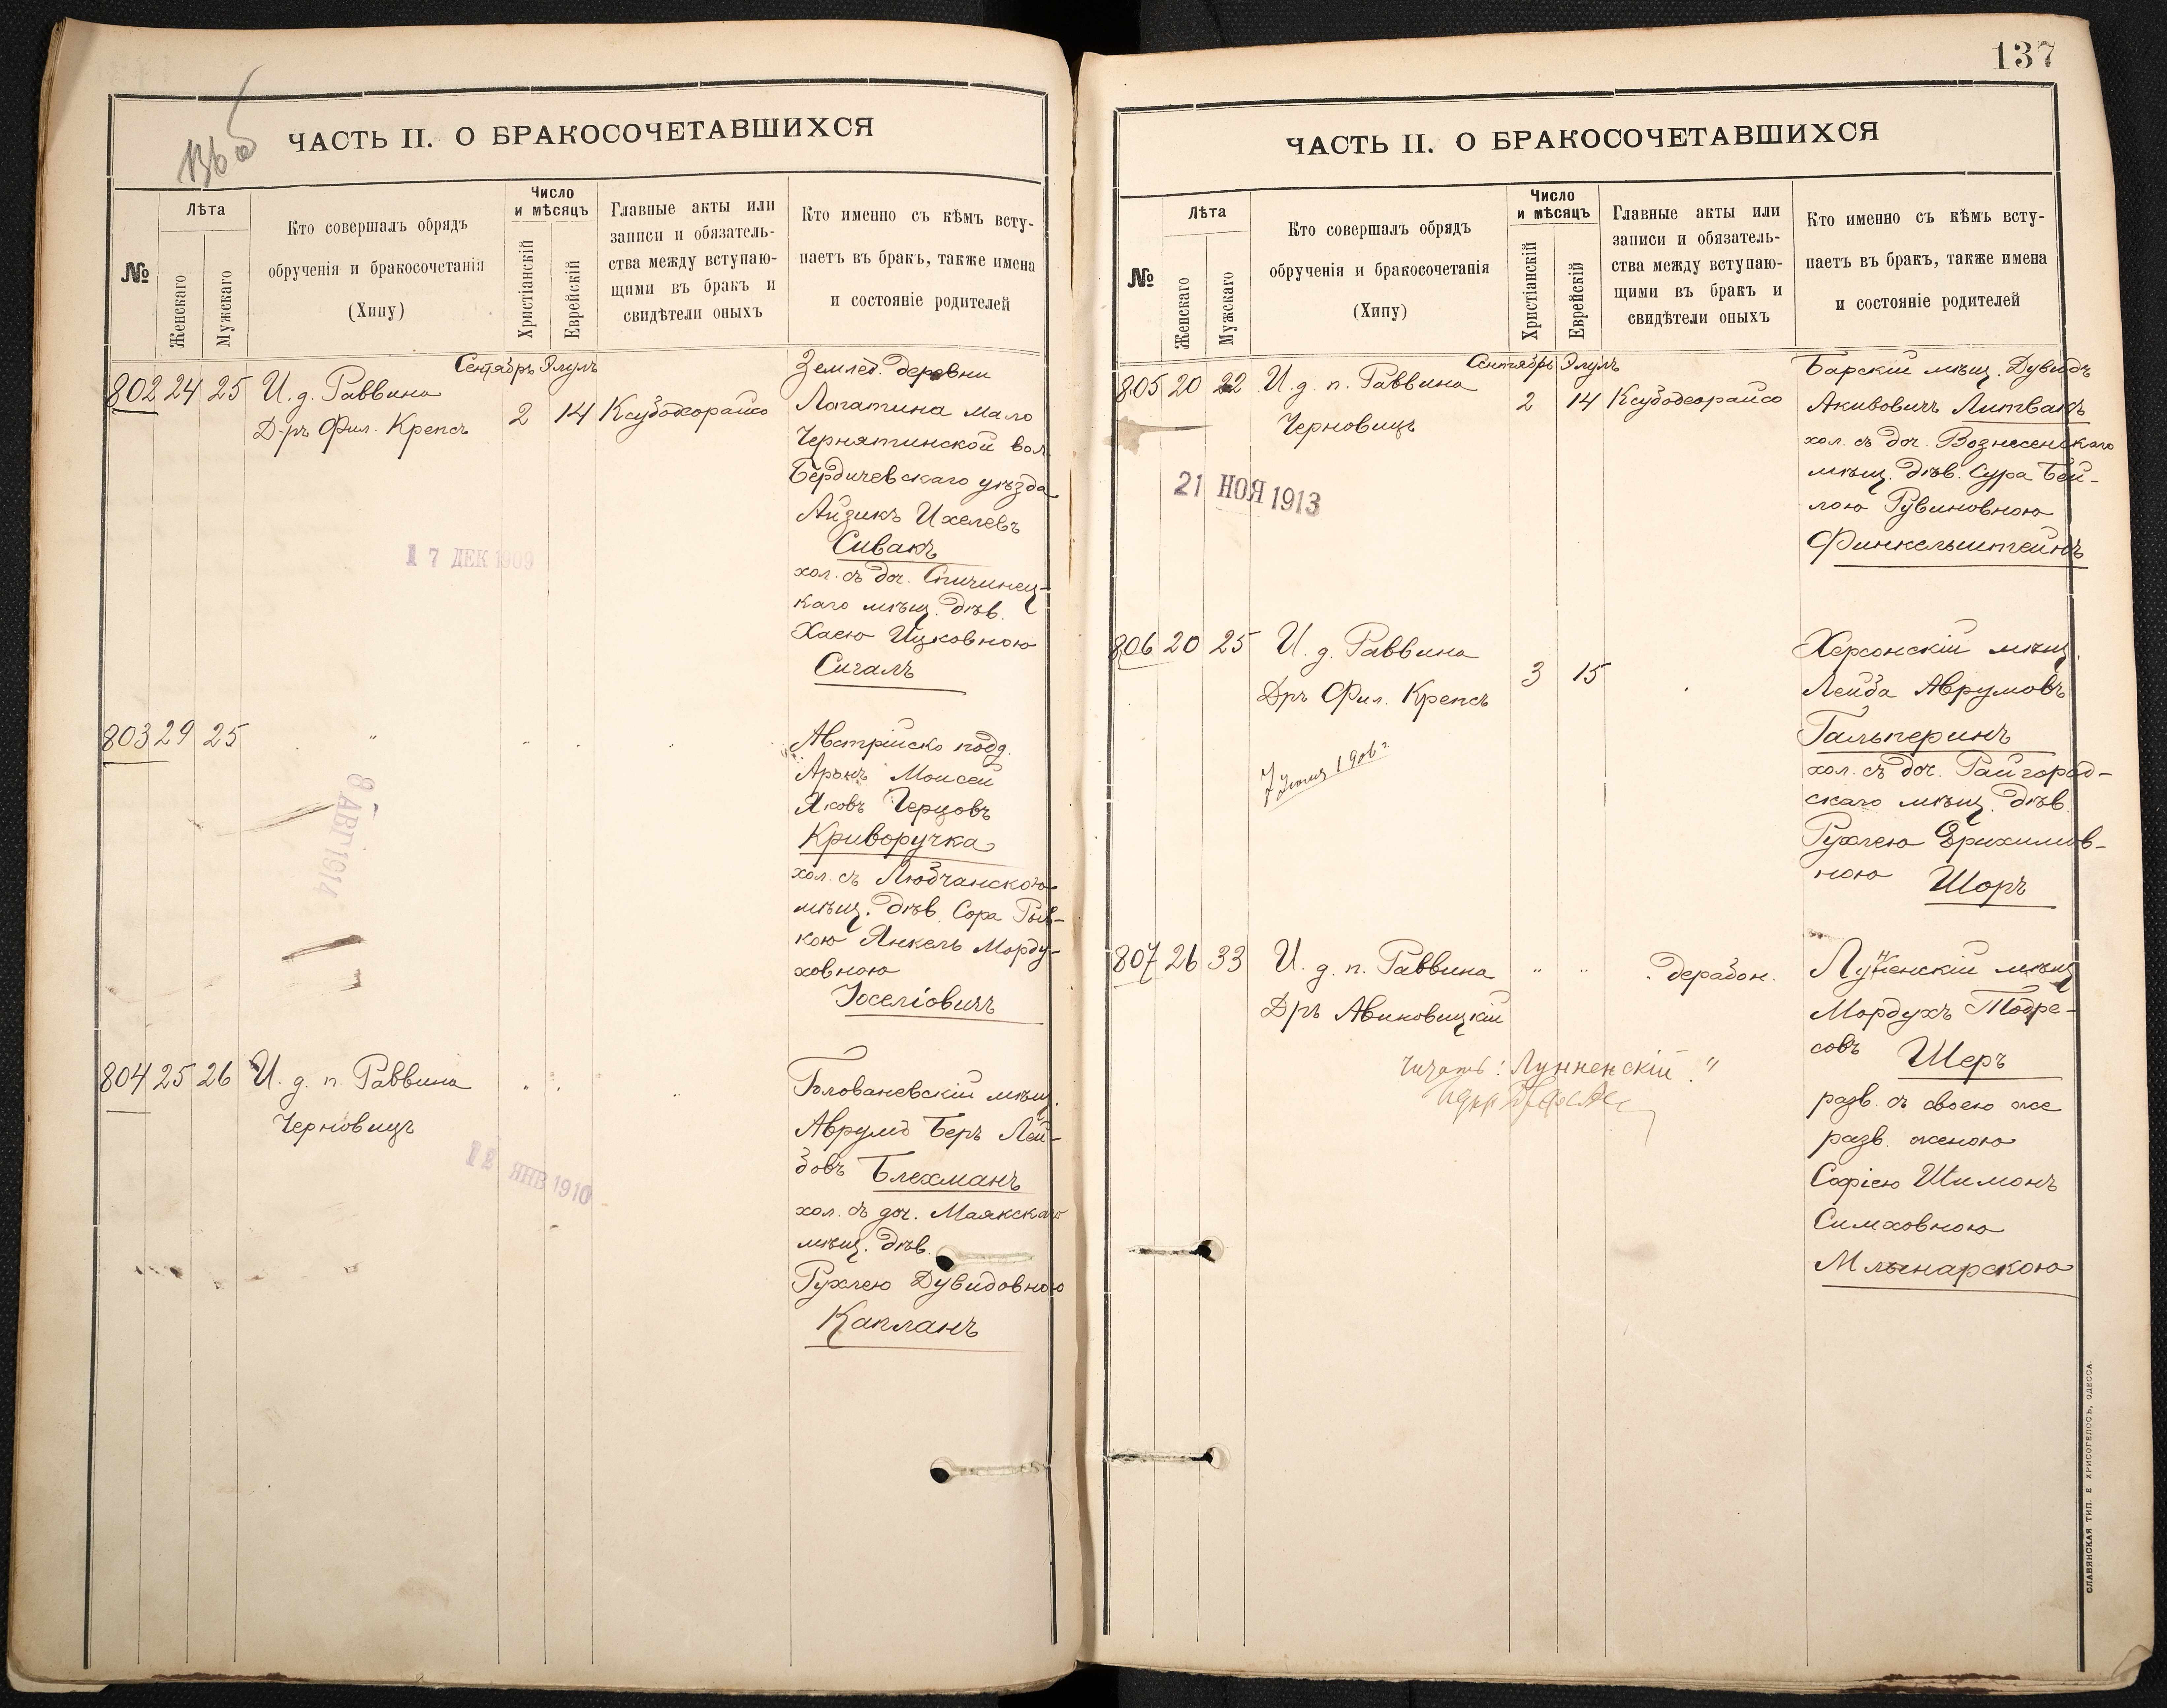 136 об
ЧАСТЬ II. О БРАКОСОЧЕТАВШИХСЯ
№
Лѣта
Женскаго
Мужскаго
Кто совершалъ обрядъ
обрученія и бракосочетанія
(Хипу)
Число
и мѣсяцъ
Христіанскій
Еврейскій
Главные акты или
записи и обязатель-
ства между вступаю-
щими въ бракъ и
свидѣтели оныхъ
Кто именно съ кѣмъ всту-
паетъ въ бракъ, также имена
и состояніе родителей
Сентябрь Элулъ
802 24 25 И. д. Раввина
Д-ръ Фил. Крепсъ
2 14 Ксубодеорайсо
Землед. деревни
Лопатина Мало
Чернятинской вол.
Бердичевскаго уѣзда
Айзикъ Ихелевъ
Сивакъ
хол. съ доч. Спичинец-
каго мѣщ. дѣв.
Хаею Ицковною
Сигалъ
17 ДЕК 1909
803 29 25 " " " "
Австрійско подд.
Аронъ Моисей
Яковъ Герцовъ
Криворучка
хол. съ Любчанскою
мѣщ. дѣв. Сора Рыв-
кою Янкель Морду-
ховною
Іоселіовичъ
8 АВГ 1914
804 25 26 И. д. п. Раввина
Черновицъ
" " "
Голованевскій мѣщ.
Аврумъ Беръ Лей-
бовъ Блехманъ
хол. съ доч. Маякскаго
мѣщ. дѣв.
Рухлею Дувидовною
Капланъ
12 ЯНВ 1910
137
ЧАСТЬ II. О БРАКОСОЧЕТАВШИХСЯ
№
Лѣта
Женскаго
Мужскаго
Кто совершалъ обрядъ
обрученія и бракосочетанія
(Хипу)
Число
и мѣсяцъ
Христіанскій
Еврейскій
Главные акты или
записи и обязатель-
ства между вступаю-
щими въ бракъ и
свидѣтели оныхъ
Кто именно съ кѣмъ всту-
паетъ въ бракъ, также имена
и состояніе родителей
Сентябрь Элулъ
805 20 22 И. д. п. Раввина
Черновицъ
2 14 Ксубодеорайсо
Барскій мѣщ. Дувидъ
Акивовичъ Литвакъ
хол. съ доч. Вознесенскаго
мѣщ. дѣв. Сура Бей-
лою Рувиновною
Финкельштейнъ
21 НОЯ 1913
806 20 25 И. д. Раввина
Дръ Фил. Крепсъ
3 15 "
Херсонскій мѣщ.
Лейба Аврумовъ
Гальперинъ
хол. съ доч. Райгород-
скаго мѣщ. дѣв.
Рухлею Эрихимов-
ною Шоръ
7 Іюня 1906 г
807 26 33 И. д. п. Раввина
Дръ Авиновицкій
" " . дерабон.
Лунненскій мѣщ
Мордухъ Тодре-
совъ Шеръ
разв. съ своею же
разв. женою
Софіею Шимонъ
Симховною
Млынарскою
Читать: Лунненскій."
СЛАВЯНСКАЯ ТИП. Е ХРИСОГЕЛОСЪ, ОДЕССА.